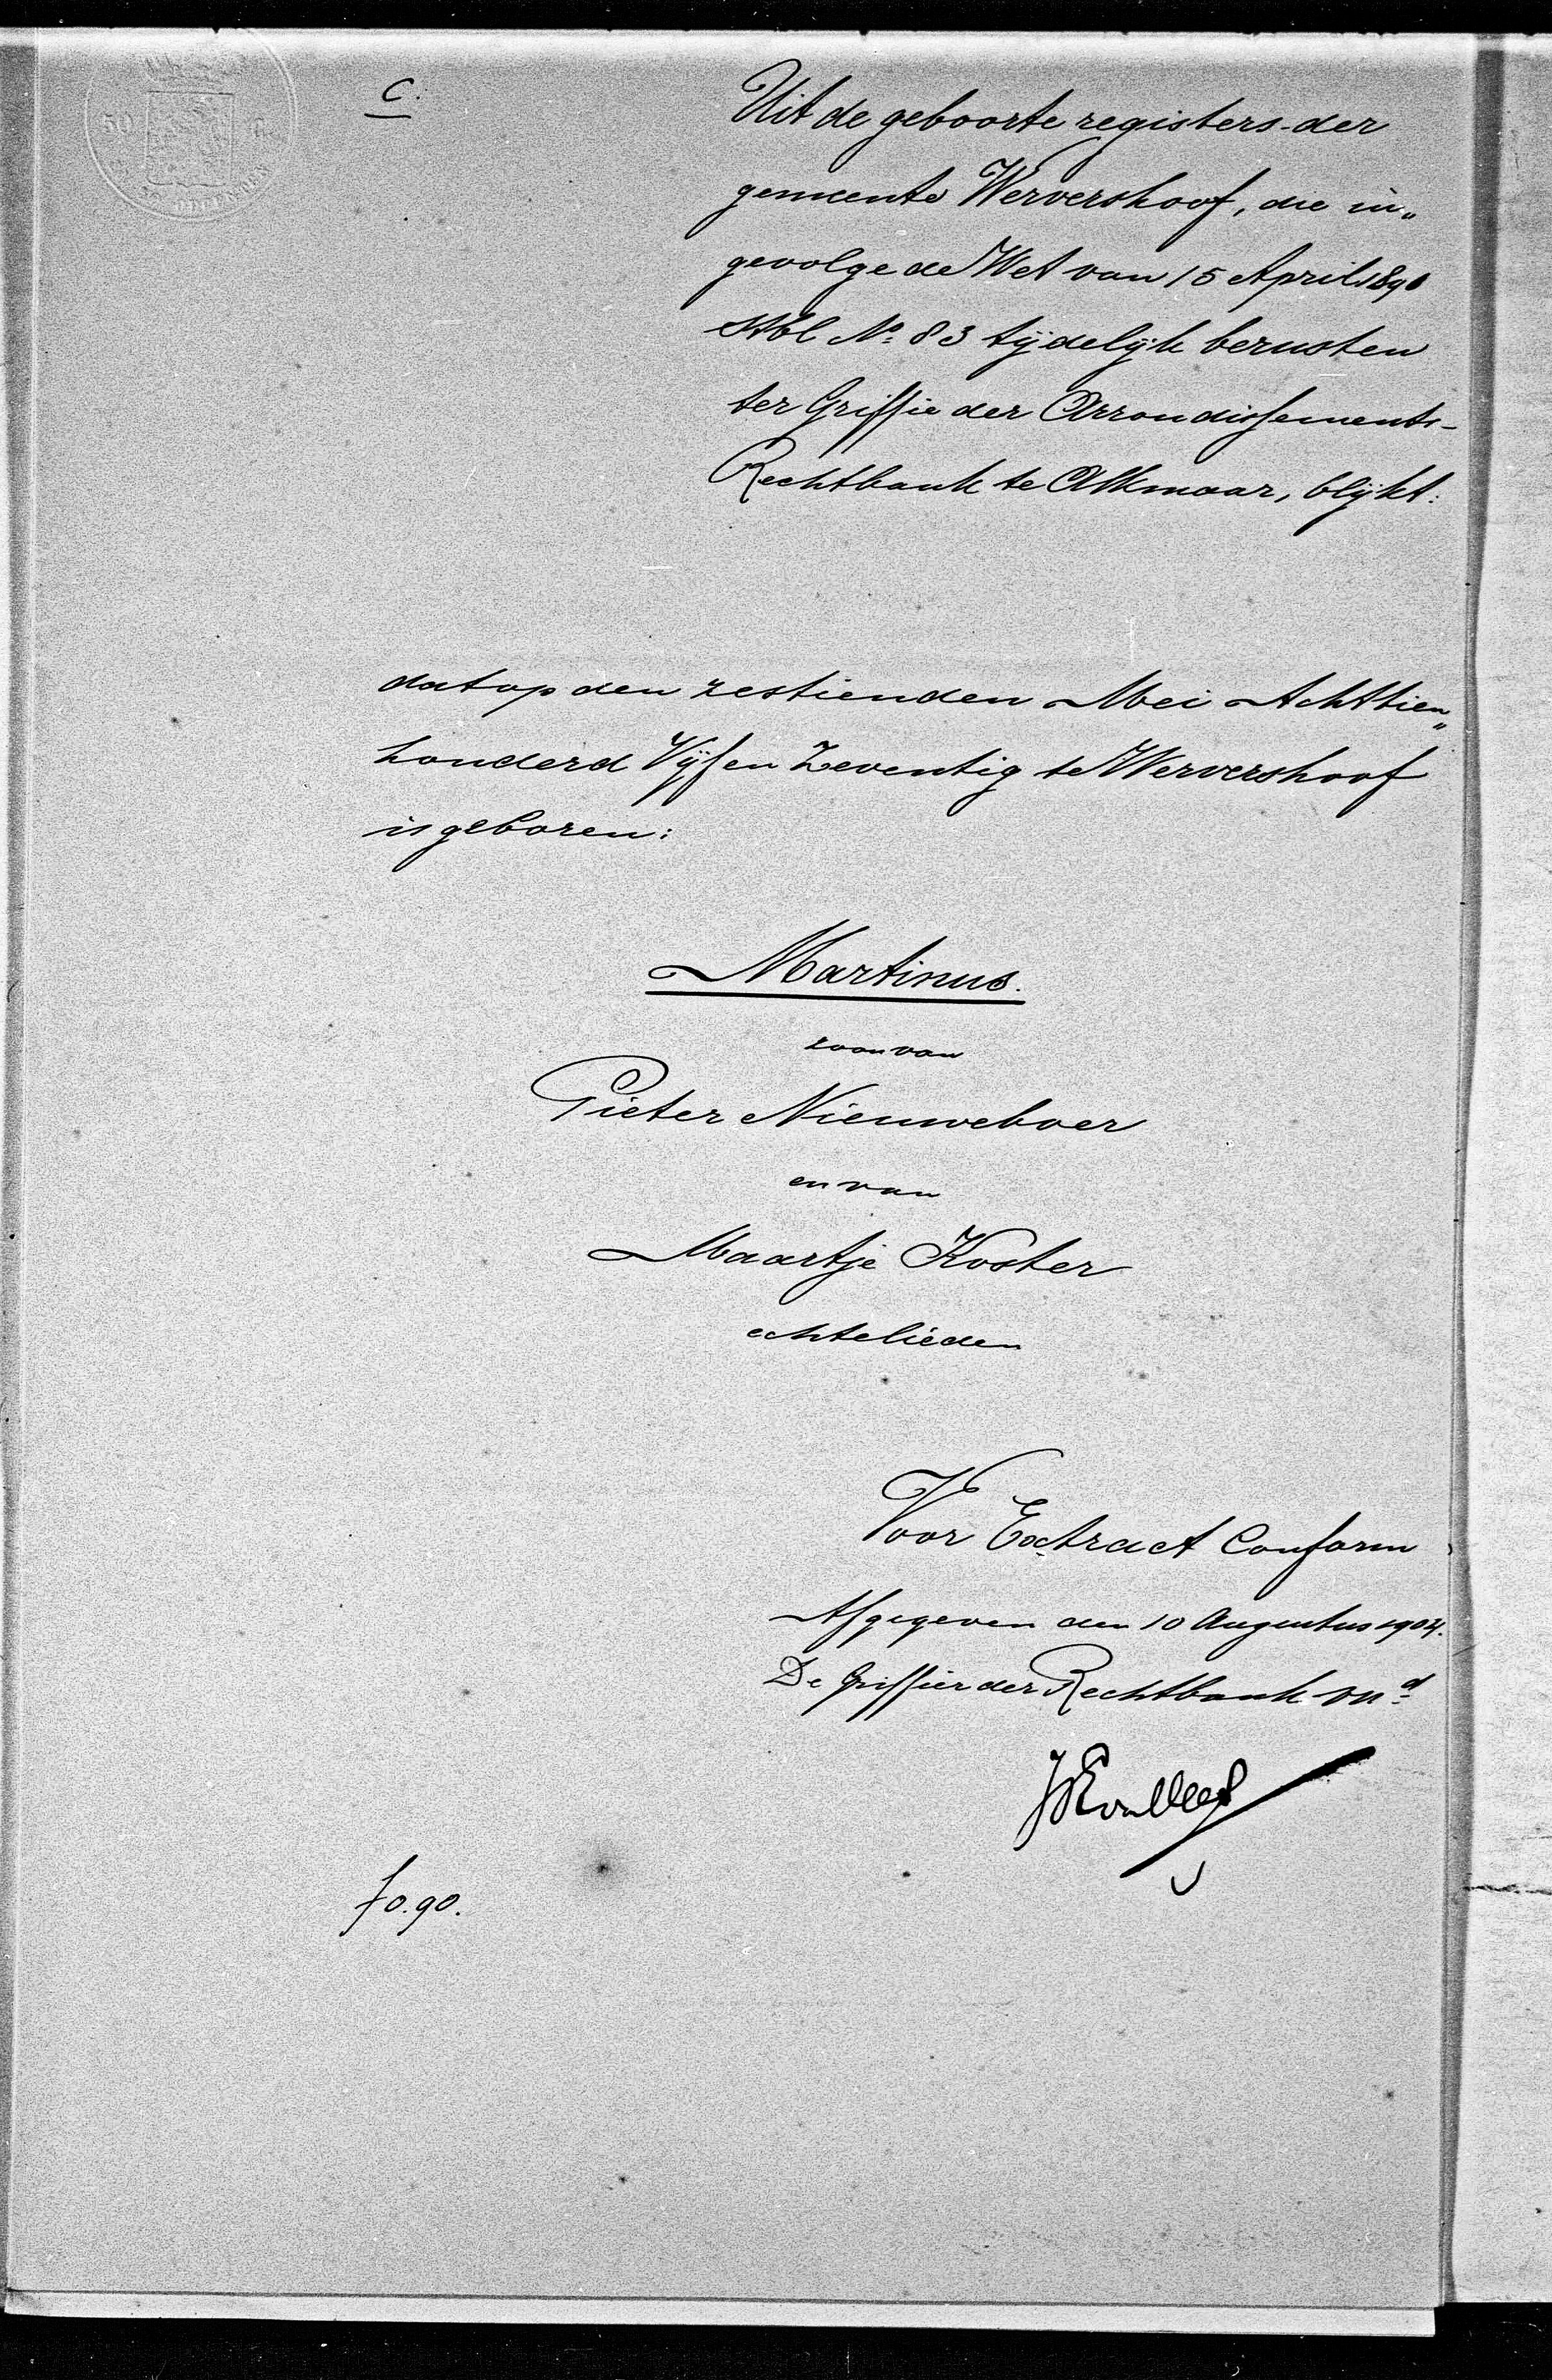 C.
Uit de geboorte registers der
gemeente Wervershoof, die in„
gevolge de Wet van 15 April 1891
Stbl No. 83 tijdelijk berusten
ter Griffie der Arrondissements-
Rechtbank te Alkmaar, blijkt:
dat op den zestienden Mei Achttien„
honderd Vijf en Zeventig te Wervershoof
is geboren:
Martinus.
zoon van
Pieter Nieuweboer
en van
Maartje Koster
echtelieden
Voor Extract Conform
Afgegeven den 10 Augustus 1904.
De Griffier der Rechtbank vnd
f 0.90.